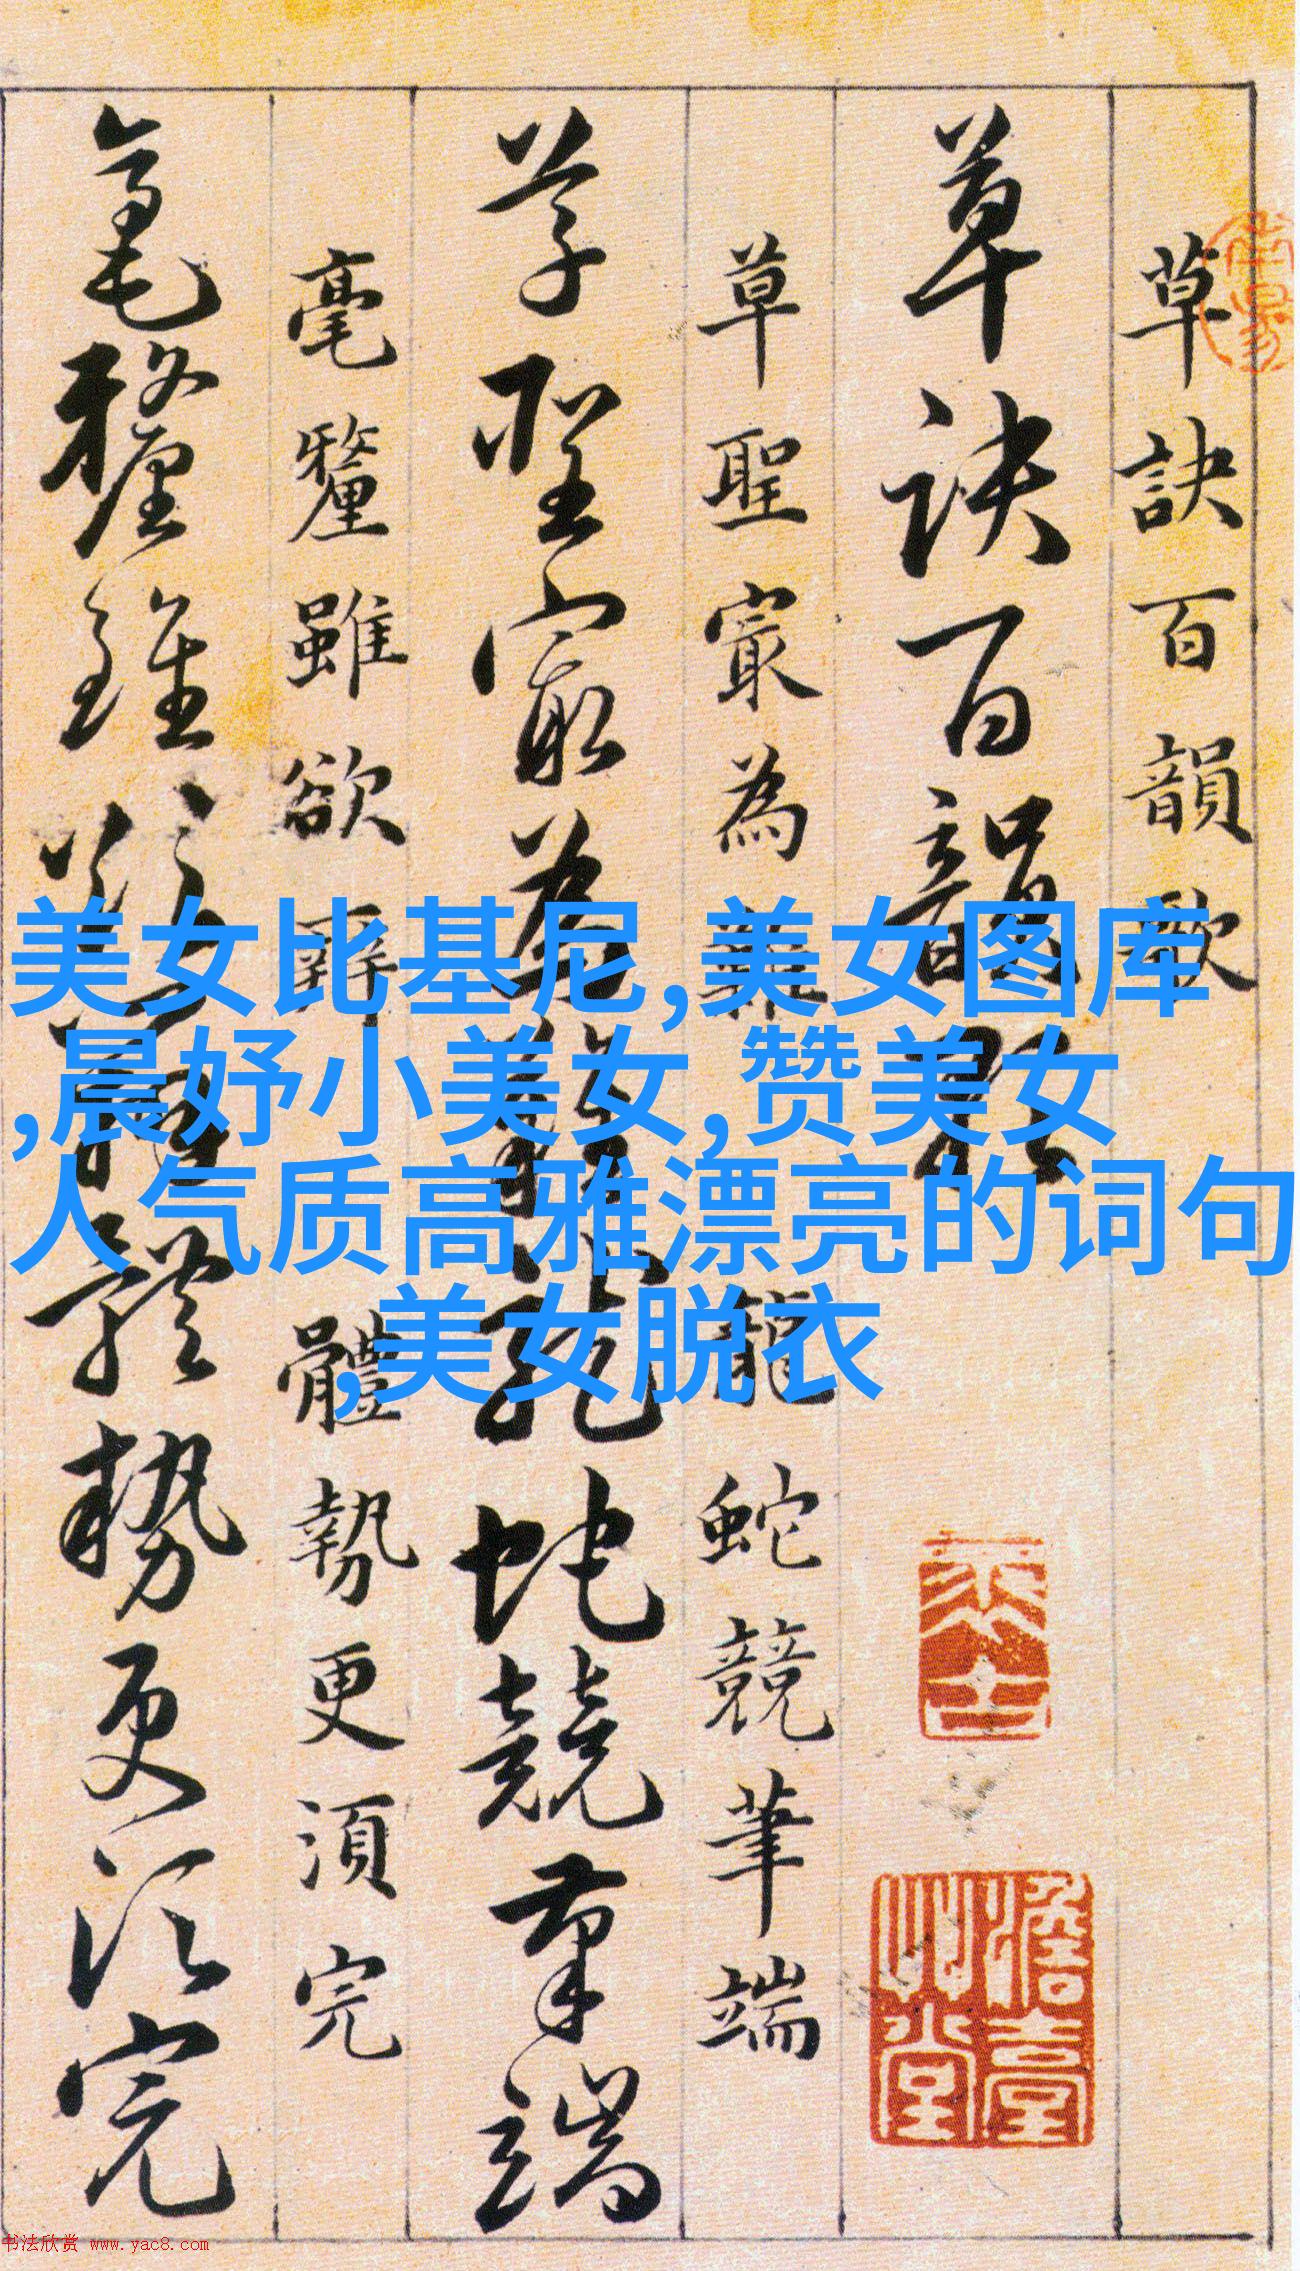 草訣百韻歌
草訣百韻歌
草聖㝡為難龍蛇競筆端
草聖㝡為難龍蛇競筆端
毫釐雖欲辨體勢更須完
毫釐雖欲辨體勢更須完
美女比基尼,美女图库
,晨妤小美女,赞美女
人气质高雅漂亮的词句
,美女脱衣
书法欣赏 www.yac8.com